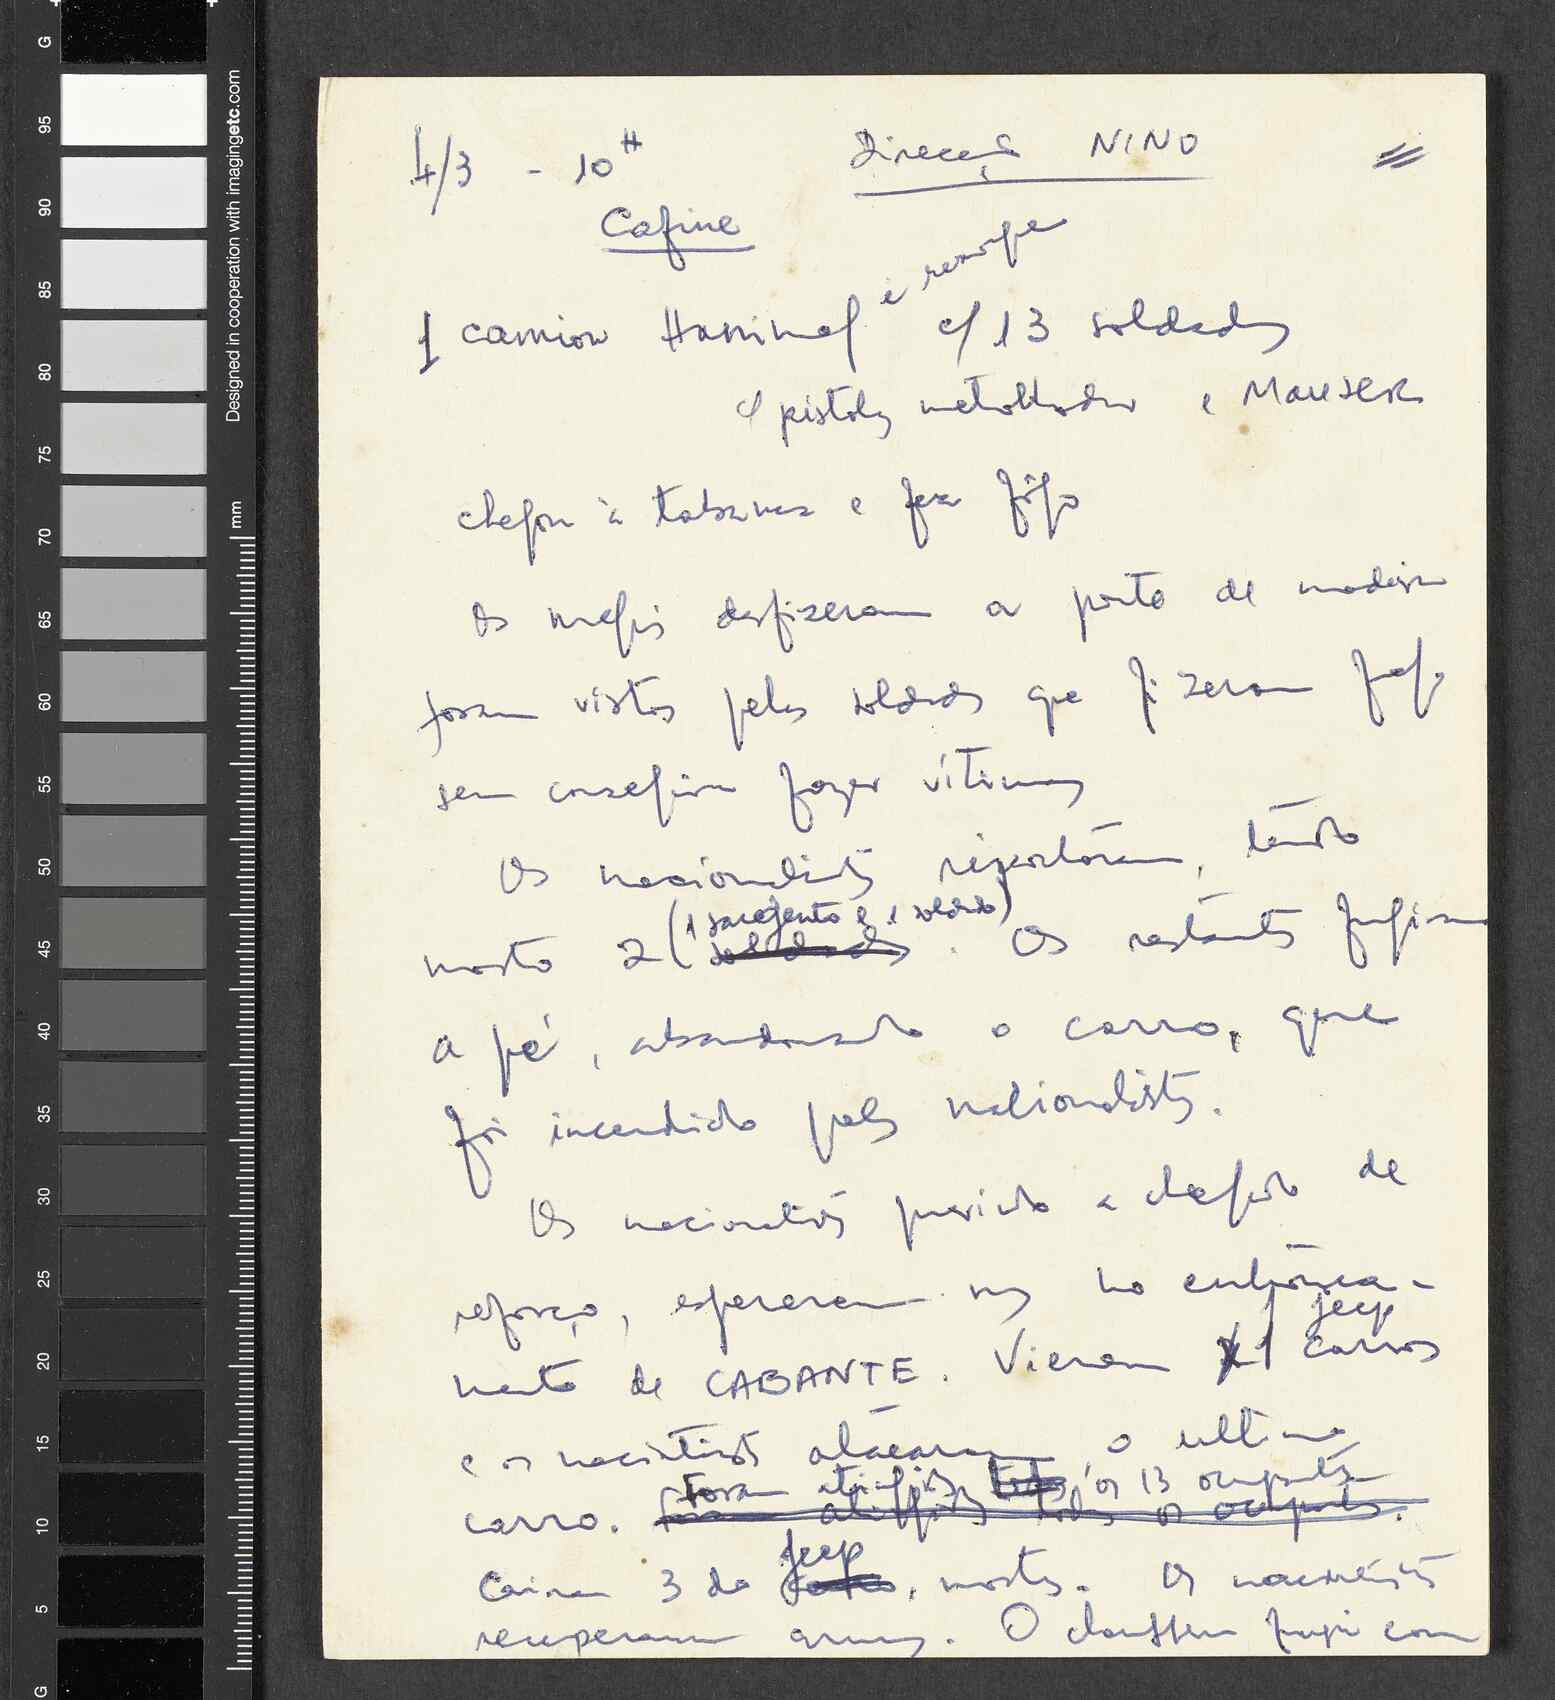 4/3 - 10H Direcção NINO
Cafine
e reboque
1 camion Hanimog c/ 13 soldados
c/ pistolas metralhadoras e MAUSER
chegou à tabanca e fez fogo
Os negros desfizeram a ponte de madeira
foram vistos pelos soldados que fizeram fogo
sem conseguirem fazer vítimas
Os nacionalistas ripostaram, tendo
(1 sargento e 1 soldado)
morto 2 soldados. Os restantes fugiram
a pé, abandonando o carro, que
foi incendiado pelos nacionalistas.
Os nacionalistas prevendo a chegada de
reforço, esperaram no entronca-
jeep
mento de CABANTE. Vieram 1 carros
e os nacionalistas atacaram o ultimo
Foram atingidos todos os 13 ocupantes
carro. Foram atingidos todos os ocupantes.
jeep
Cairam 3 do carro, mortos. Os nacionalistas
recuperaram armas. O chauffeur fugiu com
G 95 90 85 80 75 70 65 60 55 50 45 40 35 30 25 20 15 10 5 G
Designed in cooperation with imagingetc.com
mm